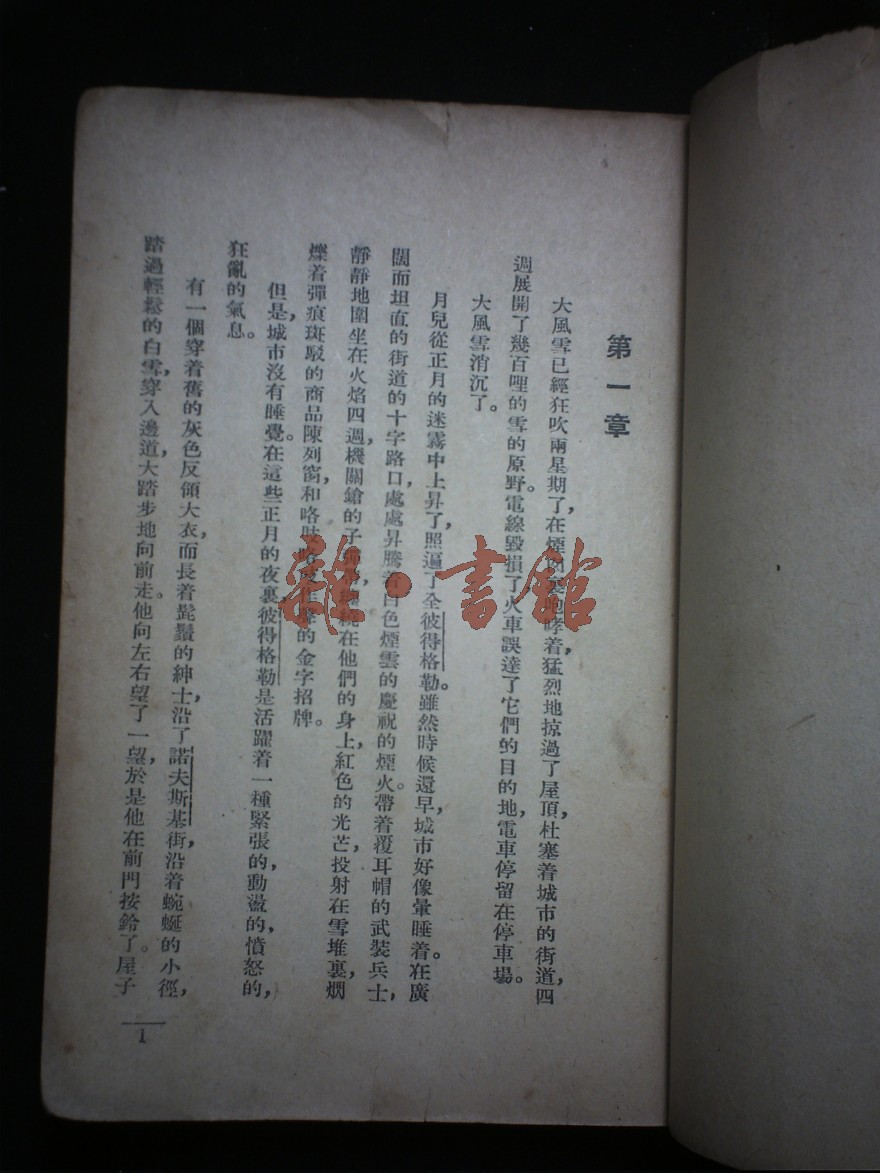 第一章
大風雪已經狂吹兩星期了，在煙囱裏咆哮着，猛烈地掠過了屋頂，杜塞着城市的街道，四
週展開了幾百哩的雪的原野。電線毀損了，火車誤達了它們的目的地，電車停留在停車場。
大風雪消沉了。
月兒從正月的迷霧中上昇了，照遍了全彼得格勒。雖然時候還早，城市好像暈睡着。在廣
闊而坦直的街道的十字路口，處處昇騰着白色煙雲的慶祝的煙火。帶着覆耳帽的武裝兵士，
靜靜地圍坐在火焰四週，機關鎗的子在他們的身上，紅色的光芒，投射在雪堆裏，燗
爍着彈痕斑駁的商品陳列窗和咯的金字招牌。
但是，城市沒有睡覺。在這些正月的夜裏，彼得格勒是活躍着一種緊張的，動盪的，憤怒的，
狂亂的氣息。
有一個穿着舊的灰色反領大衣，而長着髭鬚的紳士，沿了諾夫斯基街，沿着蜿蜒的小徑，
踏過輕鬆的白雪，穿入邊道，大踏步地向前走。他向左右望了一望，於是他在前門按鈴了。屋子
1
雜·書館